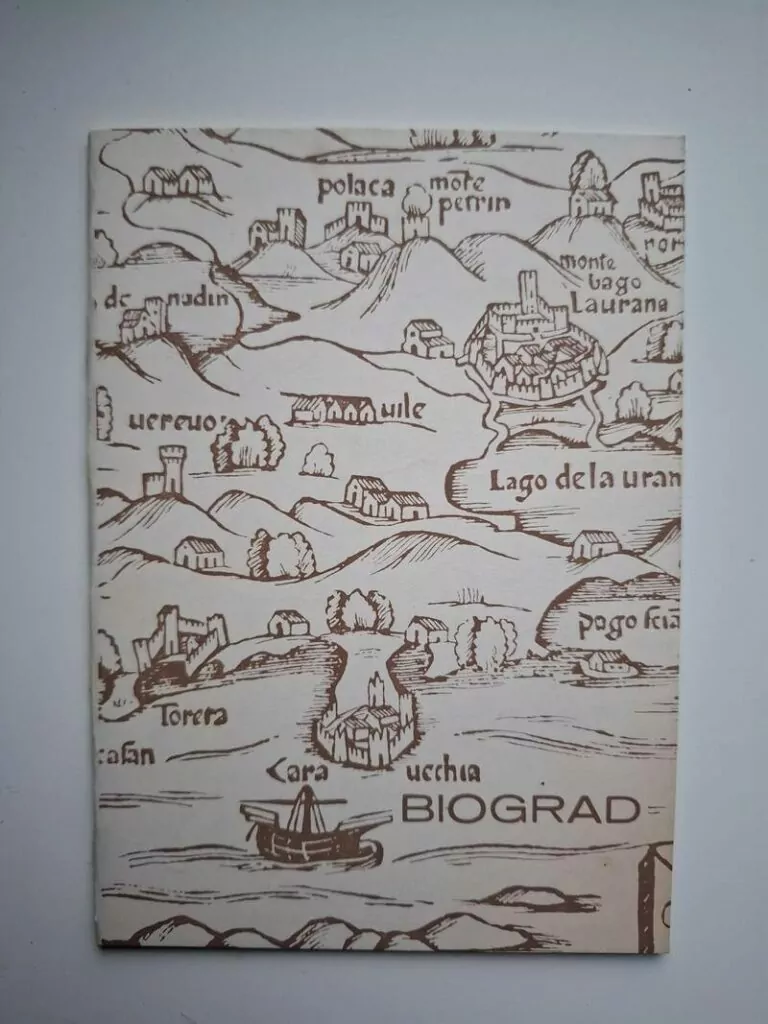 polaca
mote
petrin
monte
bago
Laurana
de nadin
uereuo
uile
Lago de la uran
pago scia
Torera
Zara uechia
BIOGRAD